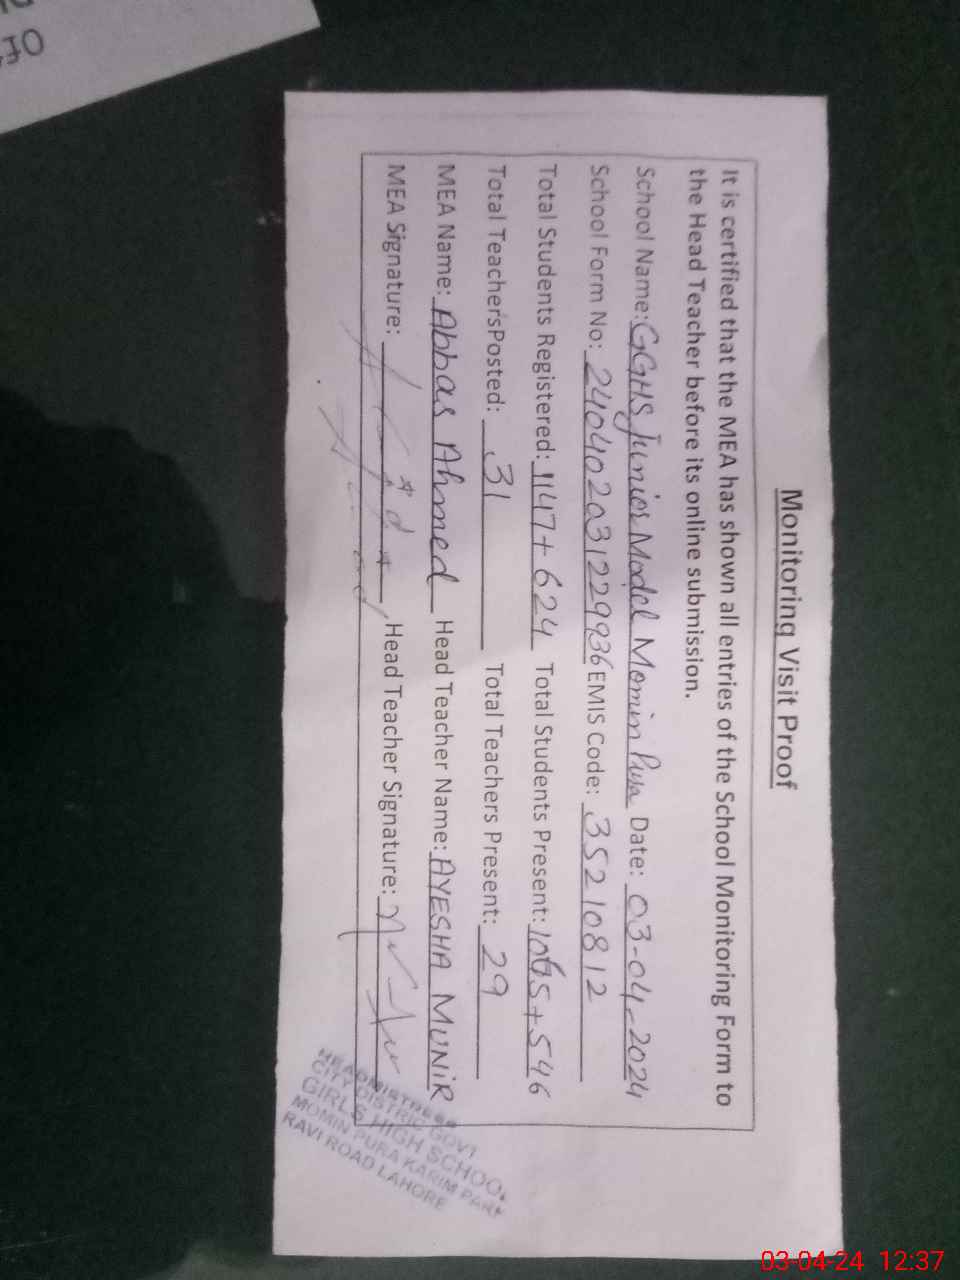 Monitoring Visit Proof
It is certified that the MEA has shown all entries of the School Monitoring Form to
the Head Teacher before its online submission.
School Name: GGHS Junior Model Momin Pura Date: 03-04-2024
School Form No: 240402a31229936 EMIS Code: 35210812
Total Students Registered: 1147+624 Total Students Present: 1065+546
Total Teacher'sPosted: 31 Total Teachers Present: 29
MEA Name: Abbas Ahmed Head Teacher Name: AYESHA MUNIR
MEA Signature: Head Teacher Signature:
HEADMISTRESS
CITY DISTRIC GOVT
GIRLS HIGH SCHOOL
MOMIN PURA KARIM PARK
RAVI ROAD LAHORE
03-04-24 12:37